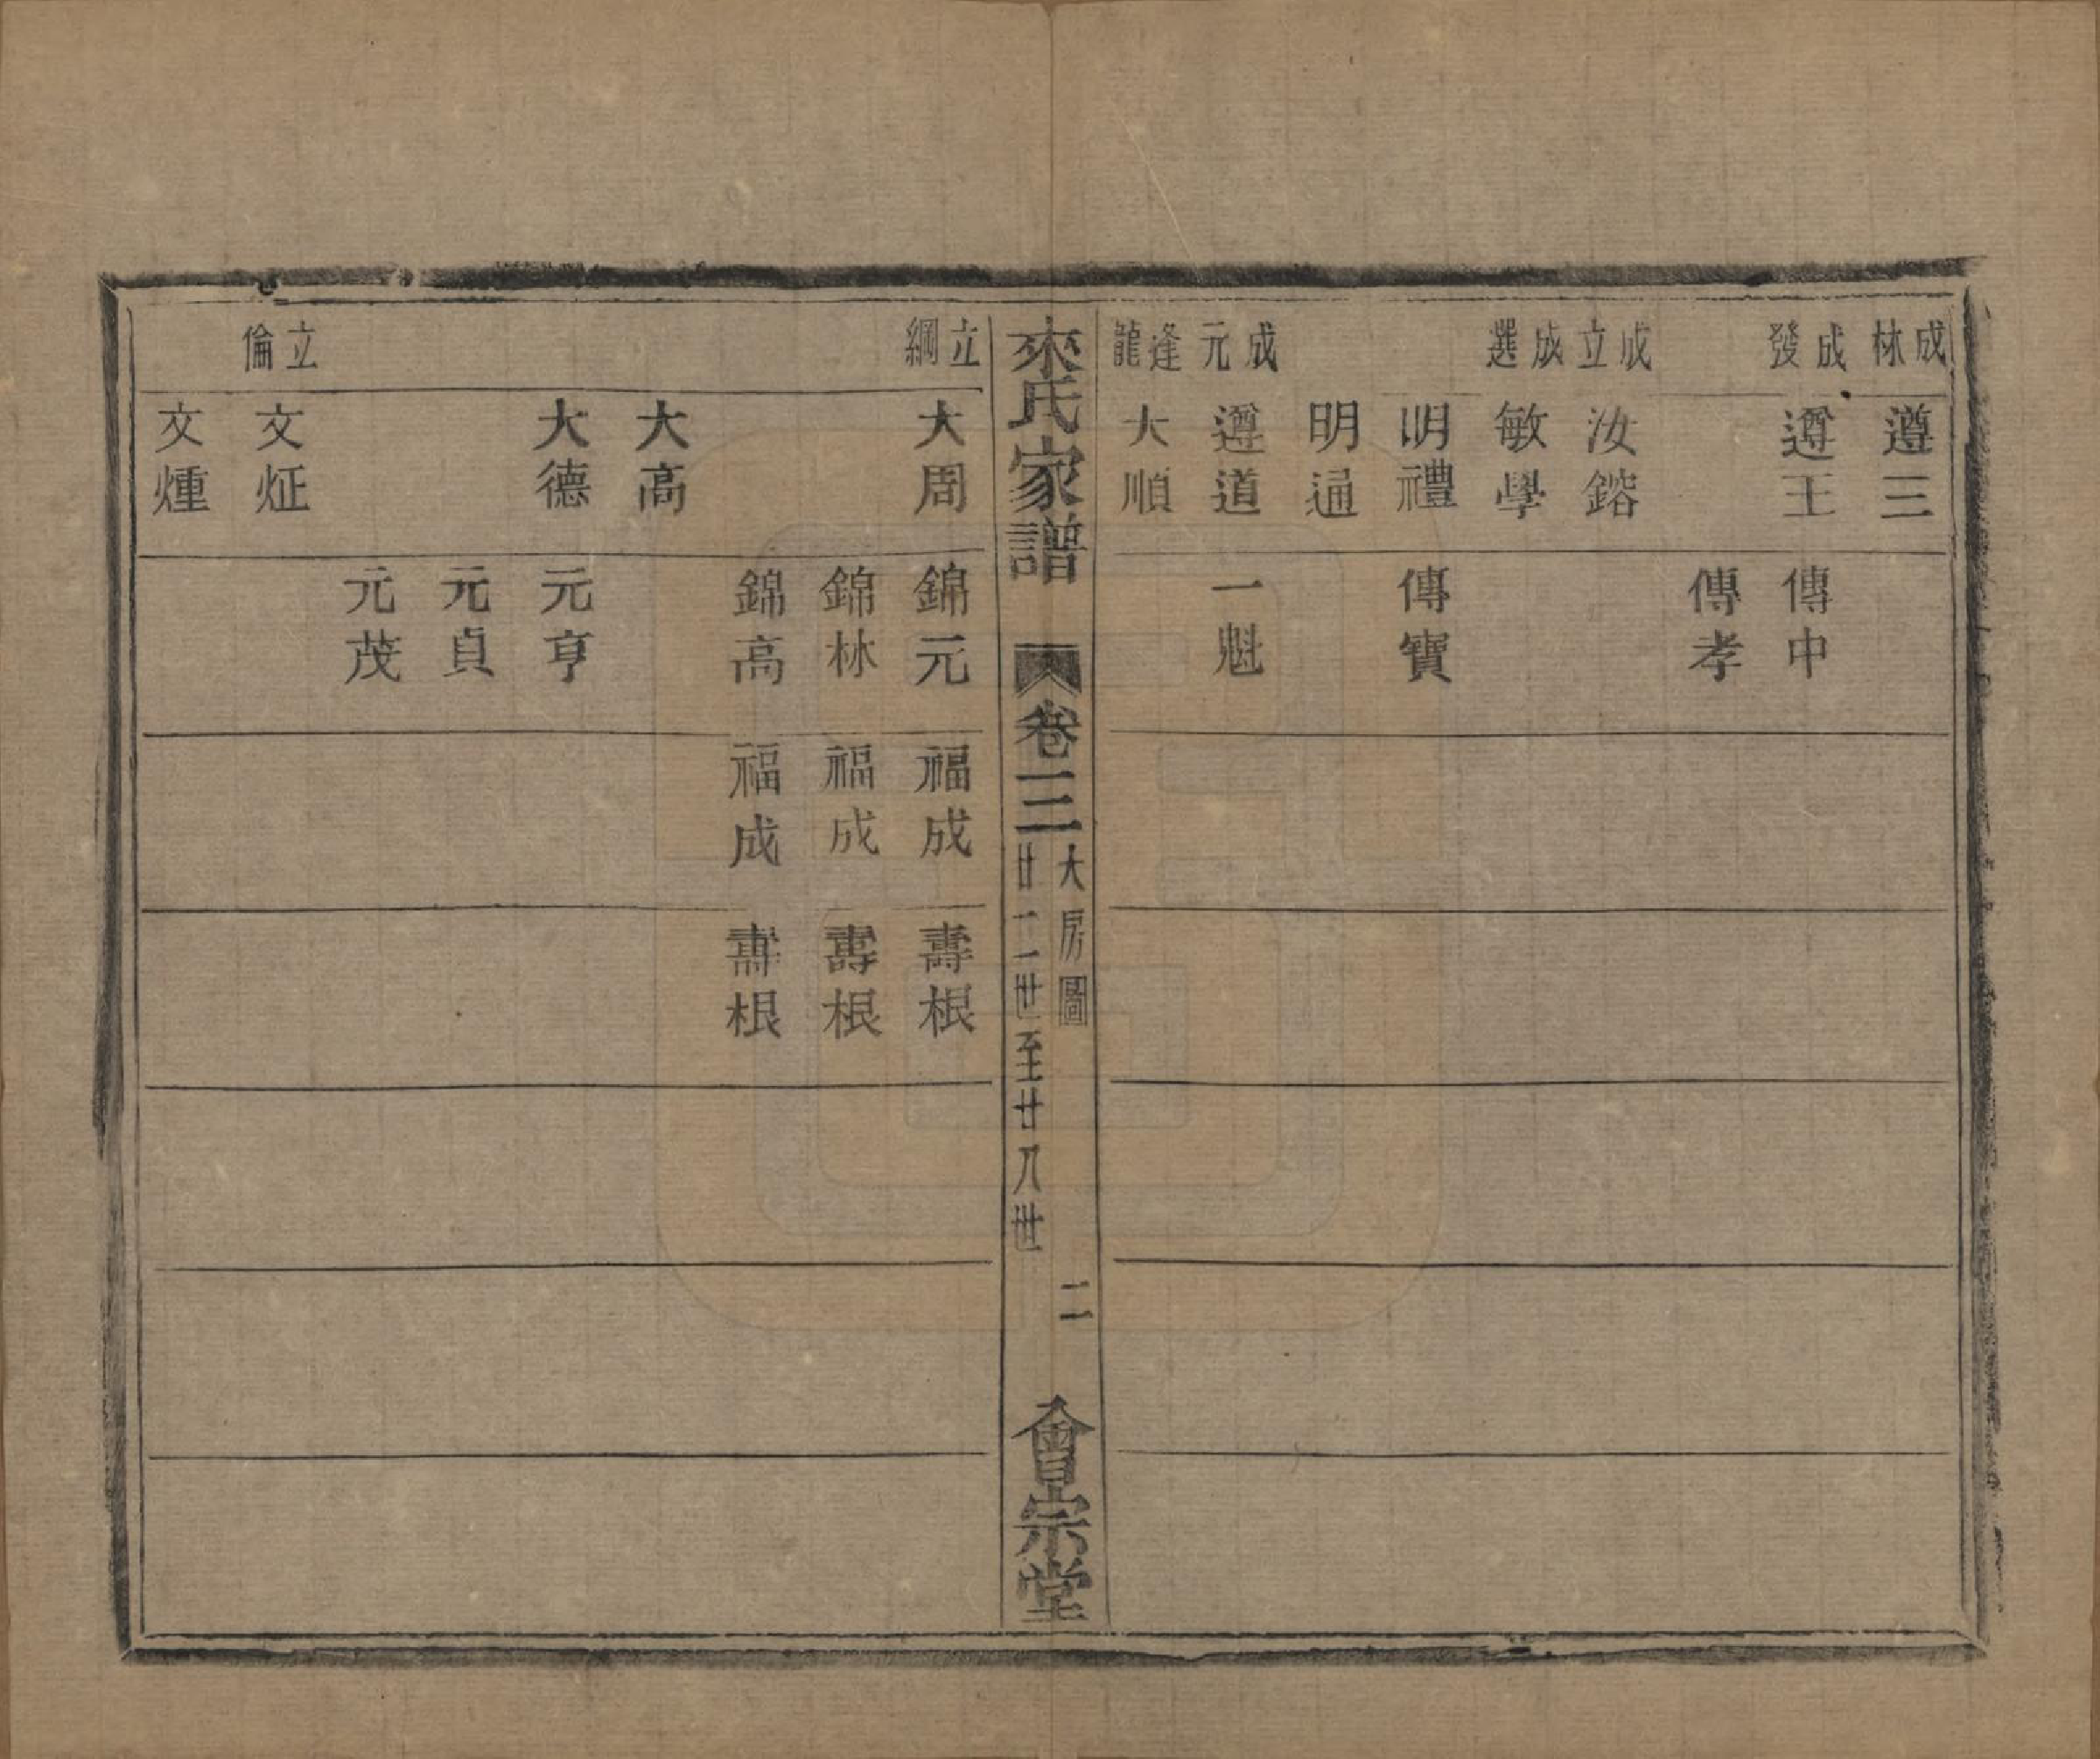 成林 遵三
成發 遵王 傳中
傳孝
成立 汝鎔
成選 敏學
明禮 傳寶
明通
成元 遵道 一魁
逢龍 大順
來氏家譜 卷三 大房圖 廿二世至廿八世 二 會宗堂
立綱 大周 錦元 福成 壽根
錦林 福成 壽根
錦高 福成 壽根
大高
大德 元亨
元貞
元茂
立倫 文炡
文煄